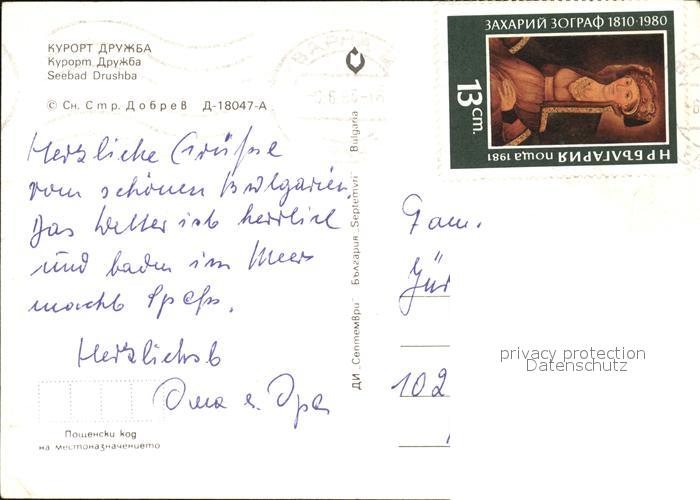 КУРОРТ ДРУЖБА
Курорт Дружба
Seebad Drushba
© Сн. Стр. Добрев Д-18047-А
ВАРНА
ЗАХАРИЙ ЗОГРАФ 1810·1980
13 cm.
НР БЪЛГАРИЯ поща 1981
Herzliche Grüße
vom schönen Bulgarien.
Das Wetter ist herrlich
und baden im Meer
macht Spaß.
Herzlichst
Oma u. Opa
Пощенски код
на местоназначението
ДИ „Септември" България „Septemvri" Bulgaria
Fam.
Jür
102
privacy protection
Datenschutz